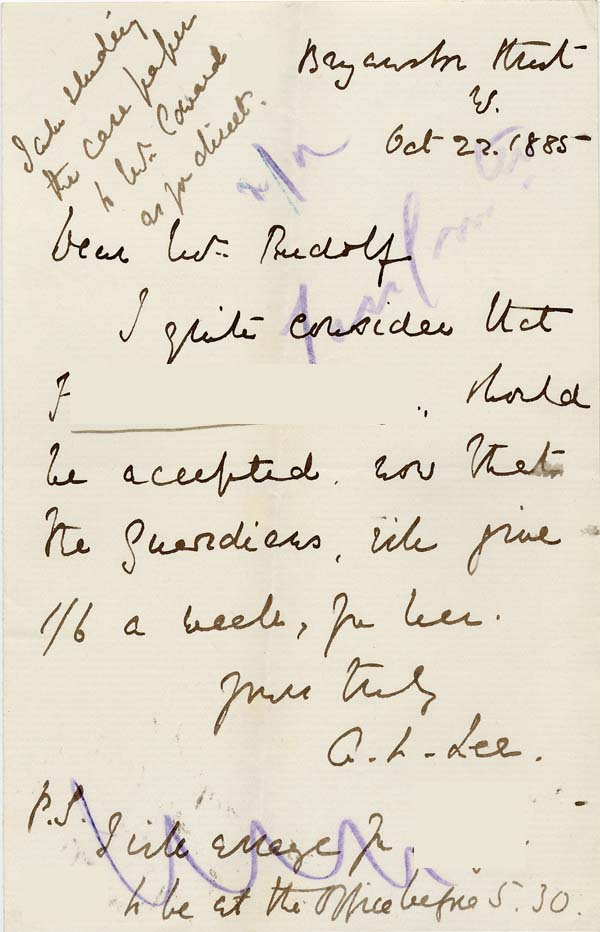 I am sending
the case paper
to Mr. Coward
as you direct.
Bryanston Street
W.
Oct 22. 1885
Dear Mr. Rudolf
I quite consider that
F should
be accepted. now that
the Guardians, will give
1/6 a week, for her.
Yours truly
A. L. Lee.
P.S. I will arrange for
to be at the Office before 5.30.